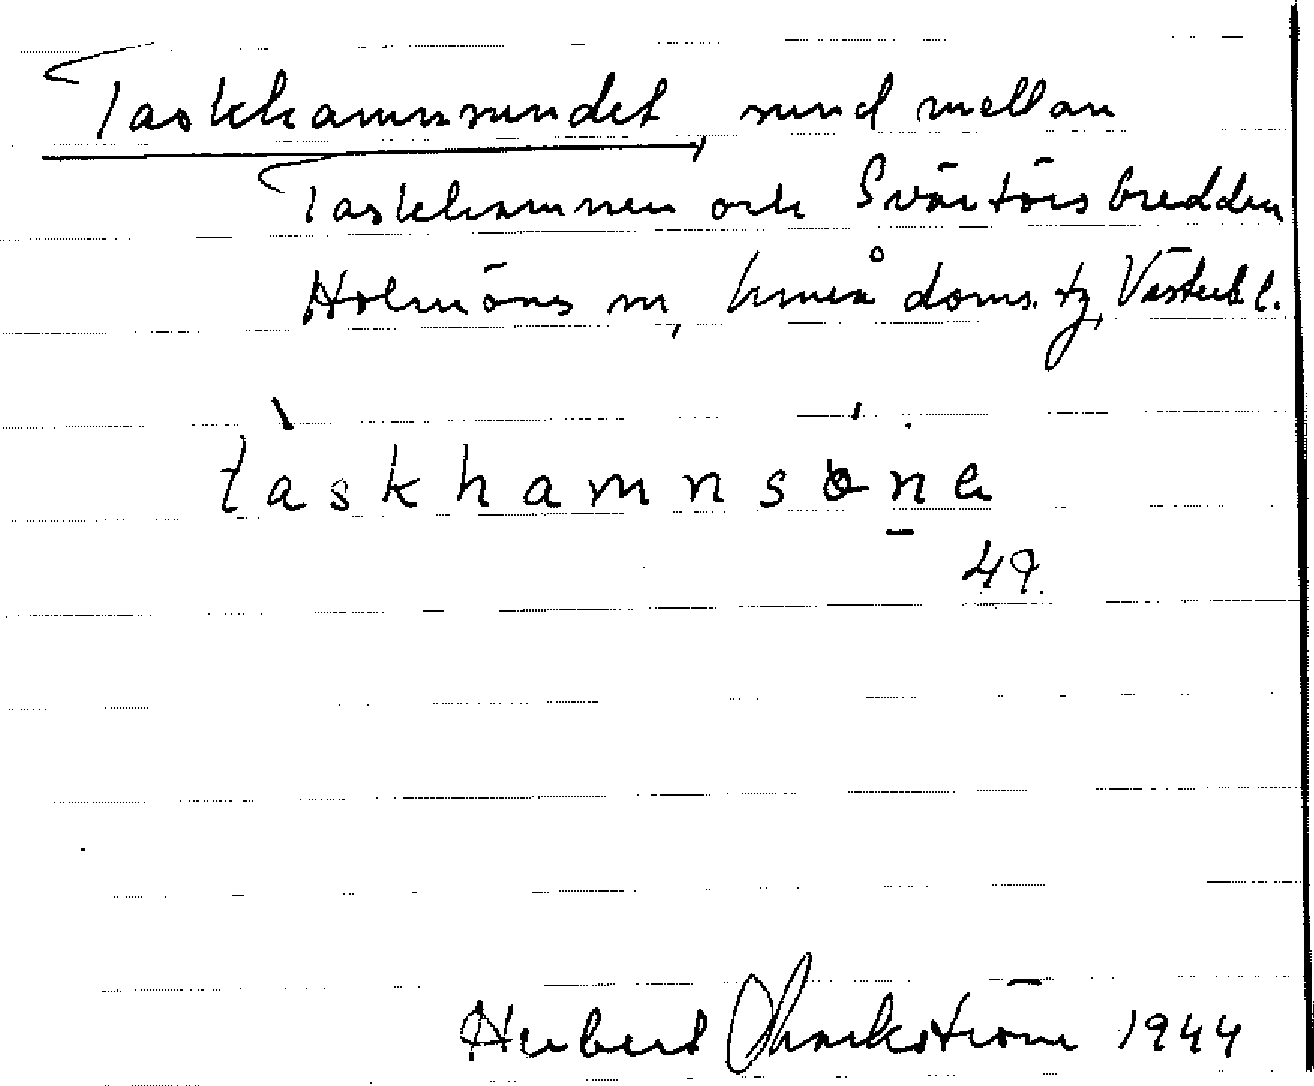 Taskhamnsundet, sund mellan
Taskhamnen och Svärtörsbredden
Holmöns sn, Umeå doms. tg, Västerb. l.
tàskhamnsɵ́ṇe
49.
Herbert Markström 1944